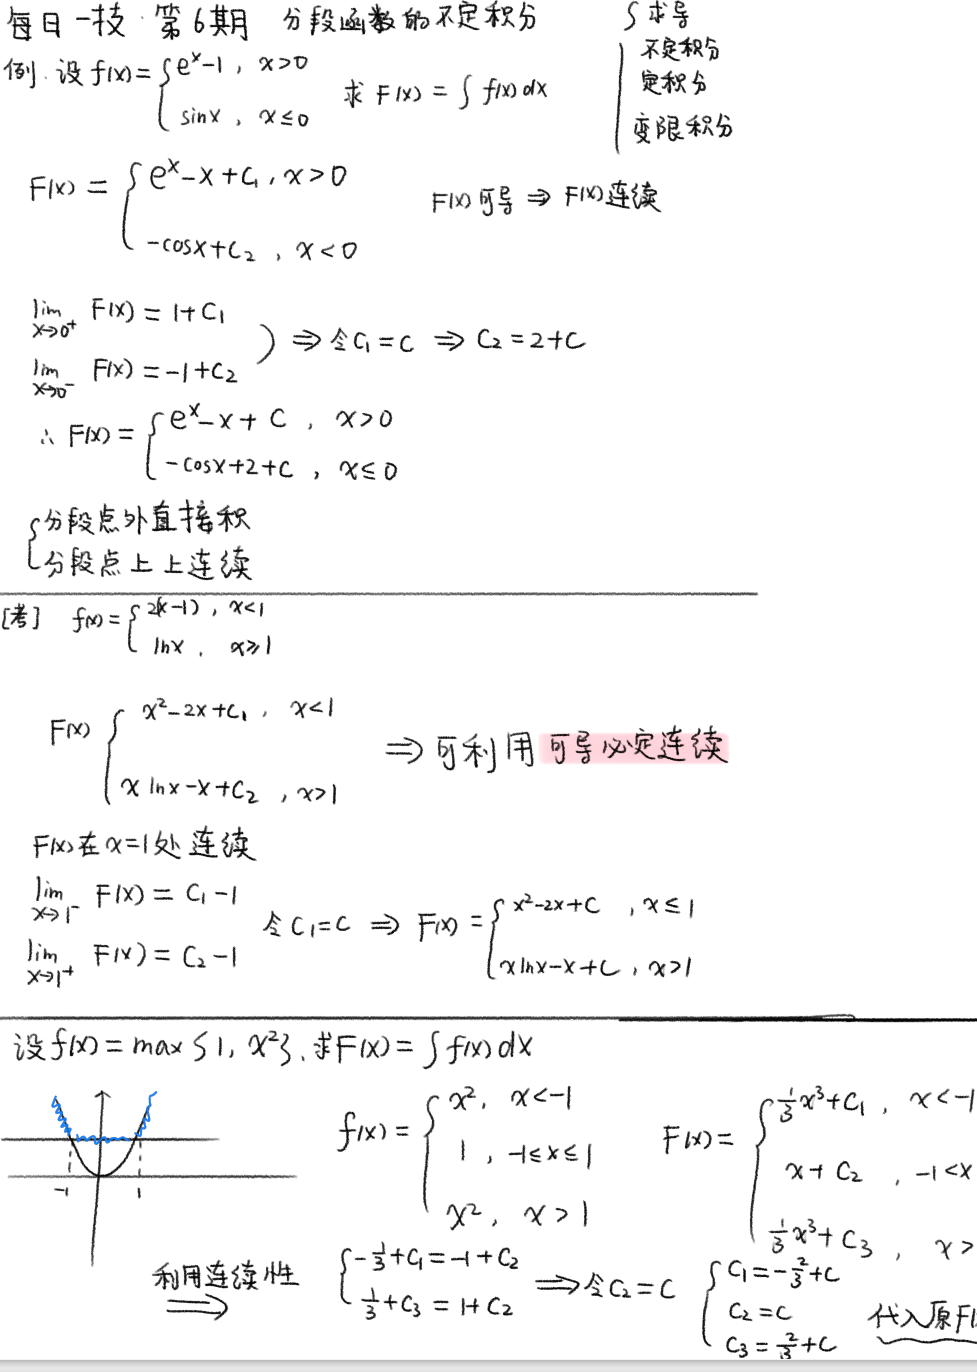 每日一技 · 第6期 分段函数的不定积分
{ 求导
不定积分
定积分
变限积分
例. 设 f(x) = { e^x-1, x>0
sinx, x≤0
求 F(x) = ∫ f(x) dx
F(x) = { e^x-x+C₁, x>0
-cosx+C₂, x<0
F(x)可导 ⇒ F(x)连续
lim x→0⁺ F(x) = 1+C₁
lim x→0⁻ F(x) = -1+C₂
) ⇒ 令C₁=C ⇒ C₂=2+C
∴ F(x) = { e^x-x+C, x>0
-cosx+2+C, x≤0
{ 分段点外直接积
分段点上上连续
[考] f(x) = { 2(x-1), x<1
lnx, x≥1
F(x) { x²-2x+C₁, x<1
x lnx-x+C₂, x>1
⇒ 可利用 可导必定连续
F(x)在x=1处连续
lim x→1⁻ F(x) = C₁-1
lim x→1⁺ F(x) = C₂-1
令C₁=C ⇒ F(x) = { x²-2x+C, x≤1
xlnx-x+C, x>1
设f(x) = max{1, x²}, 求F(x) = ∫ f(x) dx
-1 1
f(x) = { x², x<-1
1, -1≤x≤1
x², x>1
F(x) = { 1/3x³+C₁, x<-1
x+C₂, -1<x
1/3x³+C₃, x>
利用连续性
⇒
{ -1/3+C₁=-1+C₂
1/3+C₃=1+C₂
⇒ 令C₂=C
{ C₁=-2/3+C
C₂=C
C₃=2/3+C
代入原F(